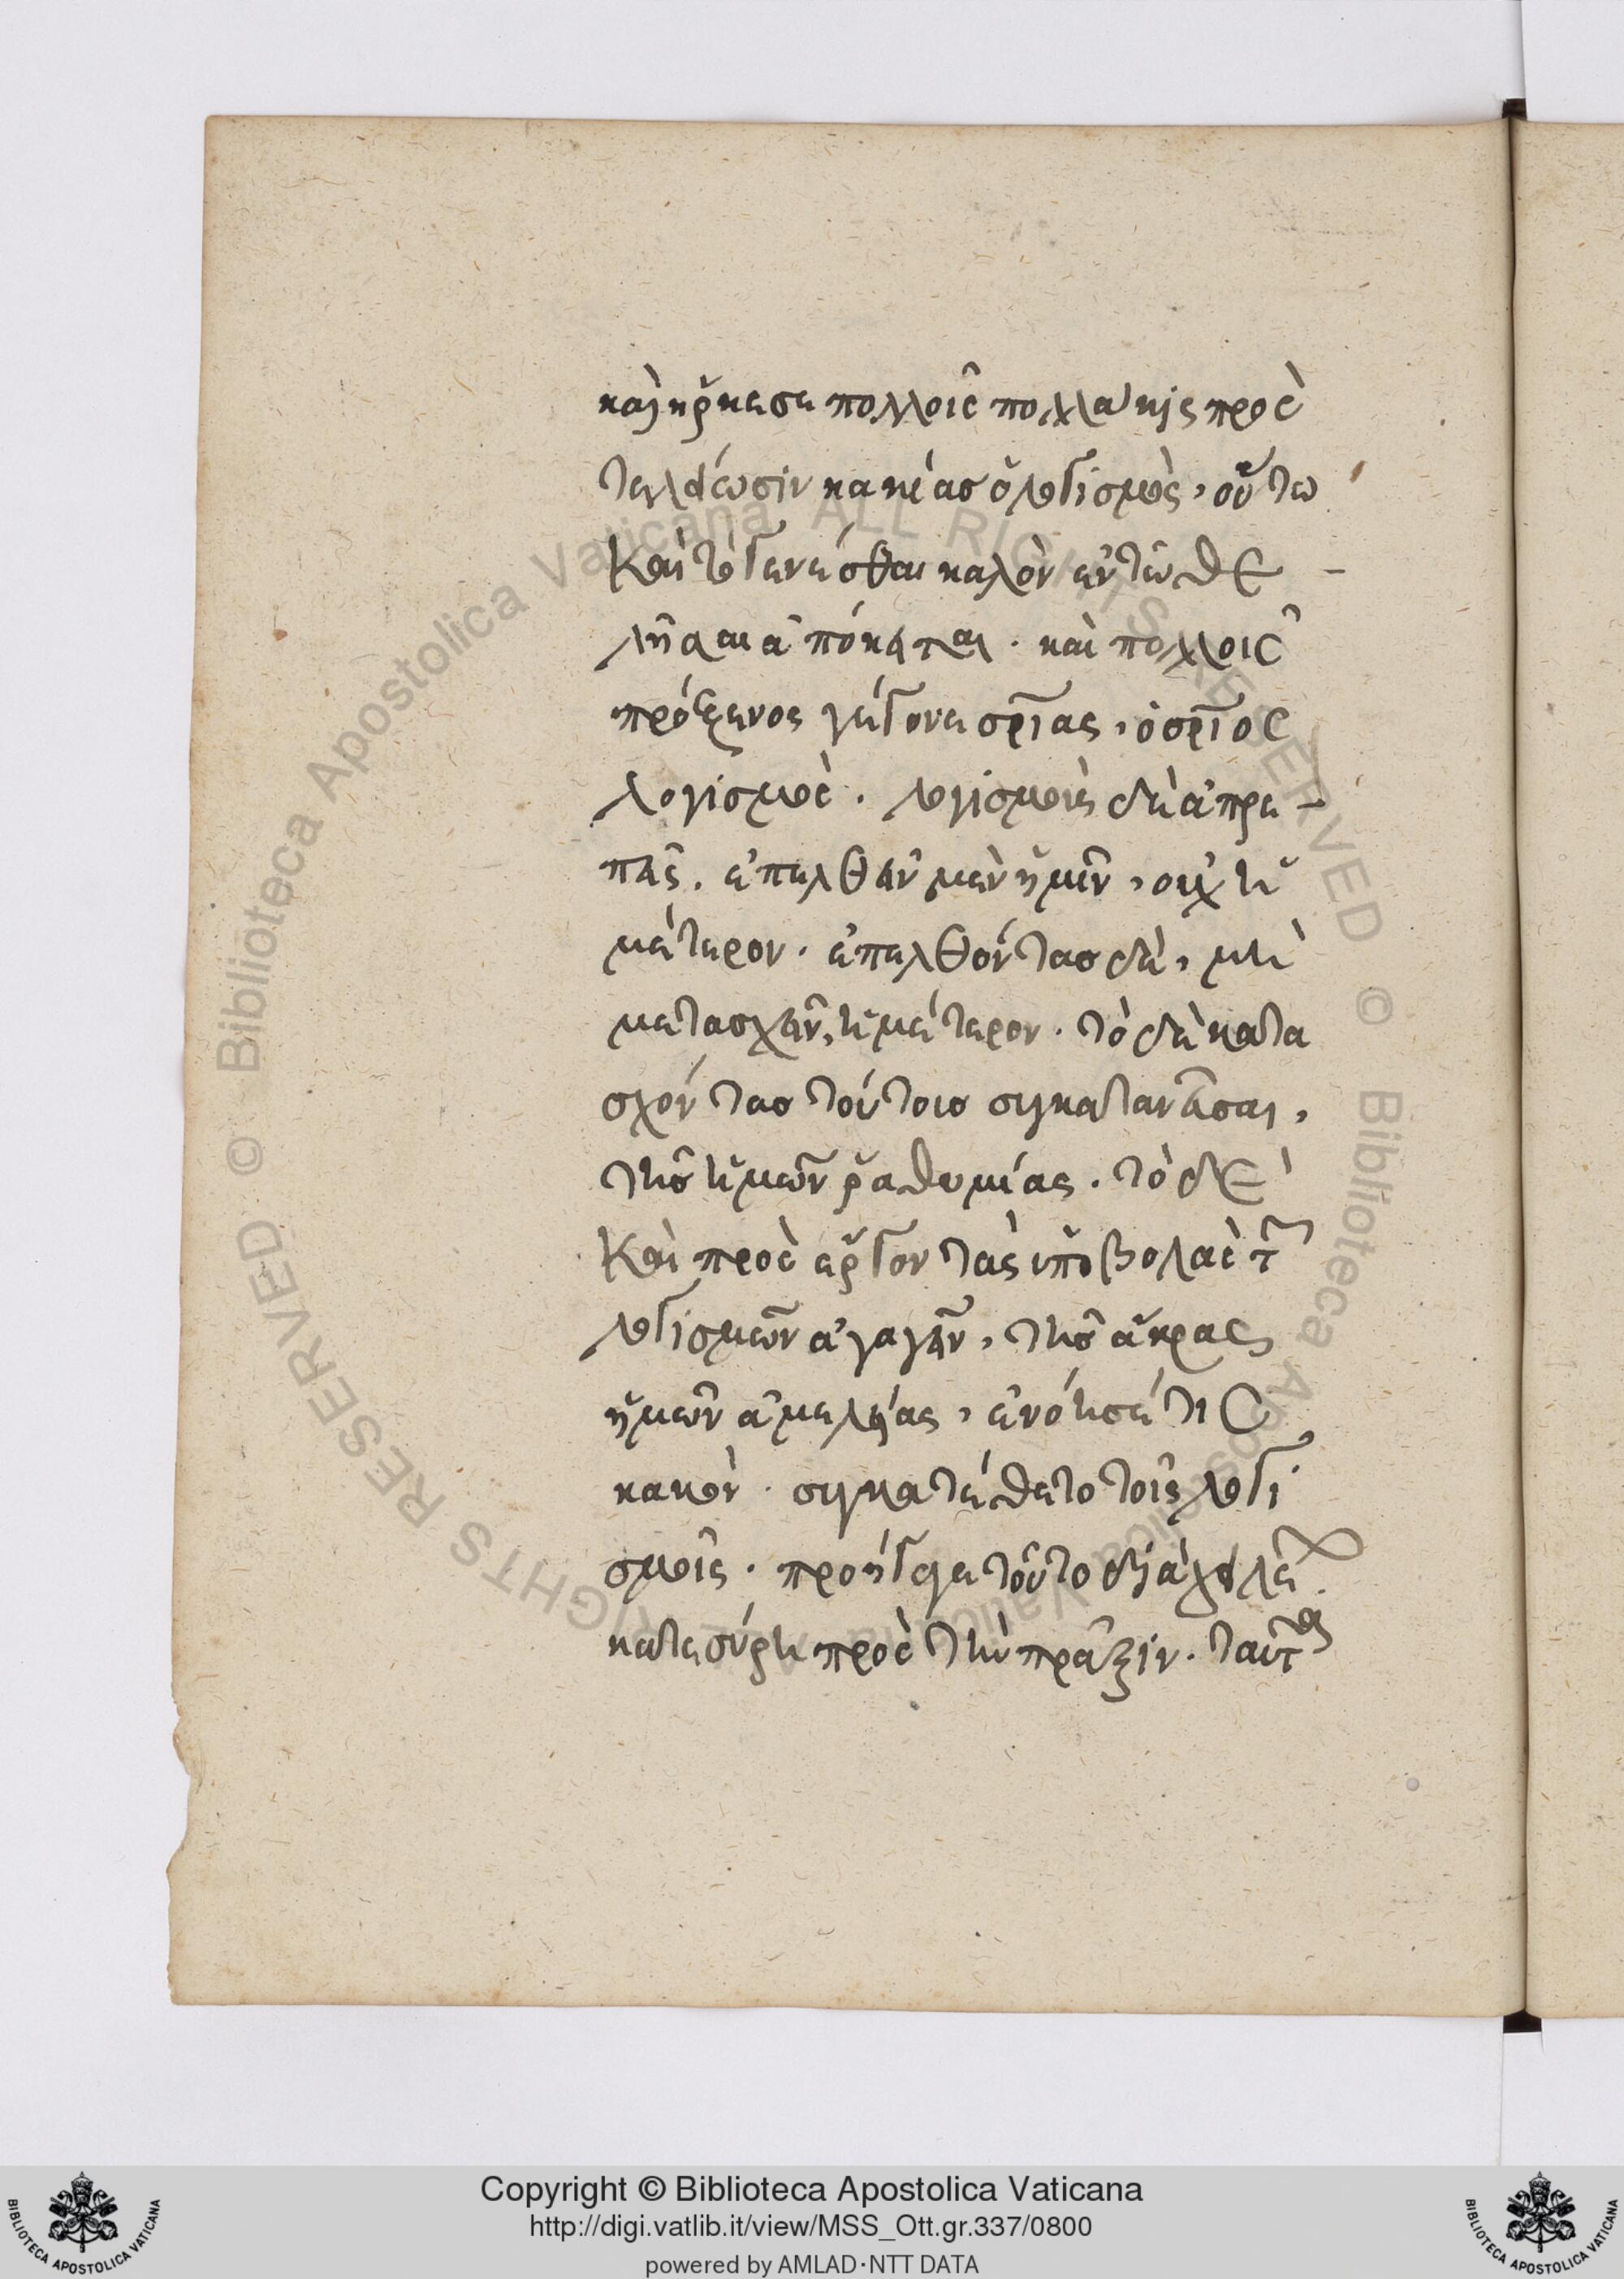 καὶ ἤρκεσε πολλοῖς πολλάκις πρὸς
τελείωσιν κακίας ὁ λογισμὸς, οὕτω
καὶ τὸ γενέσθαι καλὸν ἐν τῷ θε-
λῆσαι ἀπόκειται. καὶ πολλοῖς
πρόξενος γέγονε σρίας, ὁ σριος
λογισμὸς. λογισμοὺς δὲ ἀπρε-
πεῖς. ἐπελθεῖν μὲν ἡμῖν, οὐχ ἡ
μέτερον. ἐπελθόντας δὲ, μὴ
κατασχεῖν, ἡμέτερον. τὸ δὲ κατα
σχόντας τούτοις συγκατανεῦσαι,
τῆς ἡμῶν ῥαθυμίας. τὸ δὲ
καὶ πρὸς ἔργον τὰς ὑποβολὰς τ
λογισμῶν ἀγαγεῖν, τῆς ἄκρας
ἡμῶν ἀμελείας, ἐνόησέ τις
κακόν. συγκατέθετο τοῖς λογι
σμοῖς. προήγαγε τοῦτο διὰ χειλέ
κατεσύρη πρὸς τὴν πρᾶξιν. ταῦτα
Copyright © Biblioteca Apostolica Vaticana
http://digi.vatlib.it/view/MSS_Ott.gr.337/0800
powered by AMLAD·NTT DATA
© Biblioteca Apostolica Vaticana ALL RIGHTS RESERVED
© Biblioteca Apostolica Vaticana ALL RIGHTS RESERVED
BIBLIOTECA APOSTOLICA VATICANA
BIBLIOTECA APOSTOLICA VATICANA